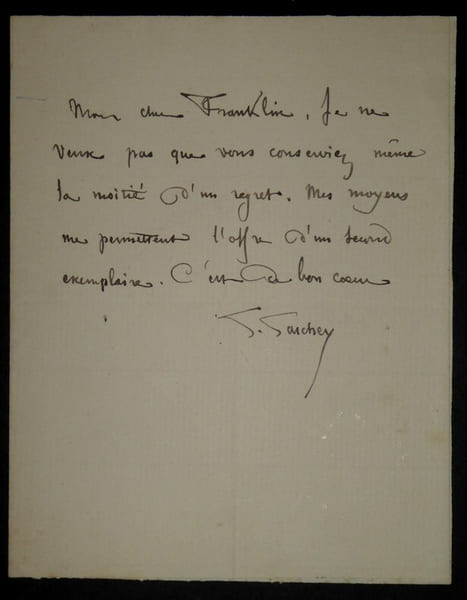 Mon cher Franklin, Je ne
veux pas que vous conserviez même
la moitié d'un regret. Mes moyens
me permettent l'offre d'un second
exemplaire. C'est de bon coeur